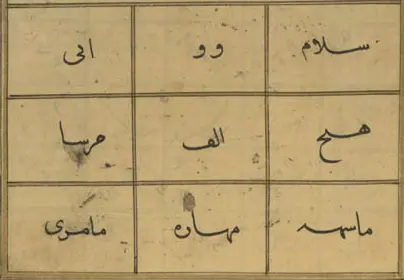 سلام وو الی
هیح الف حرسا
ماسهه مهاره مامری